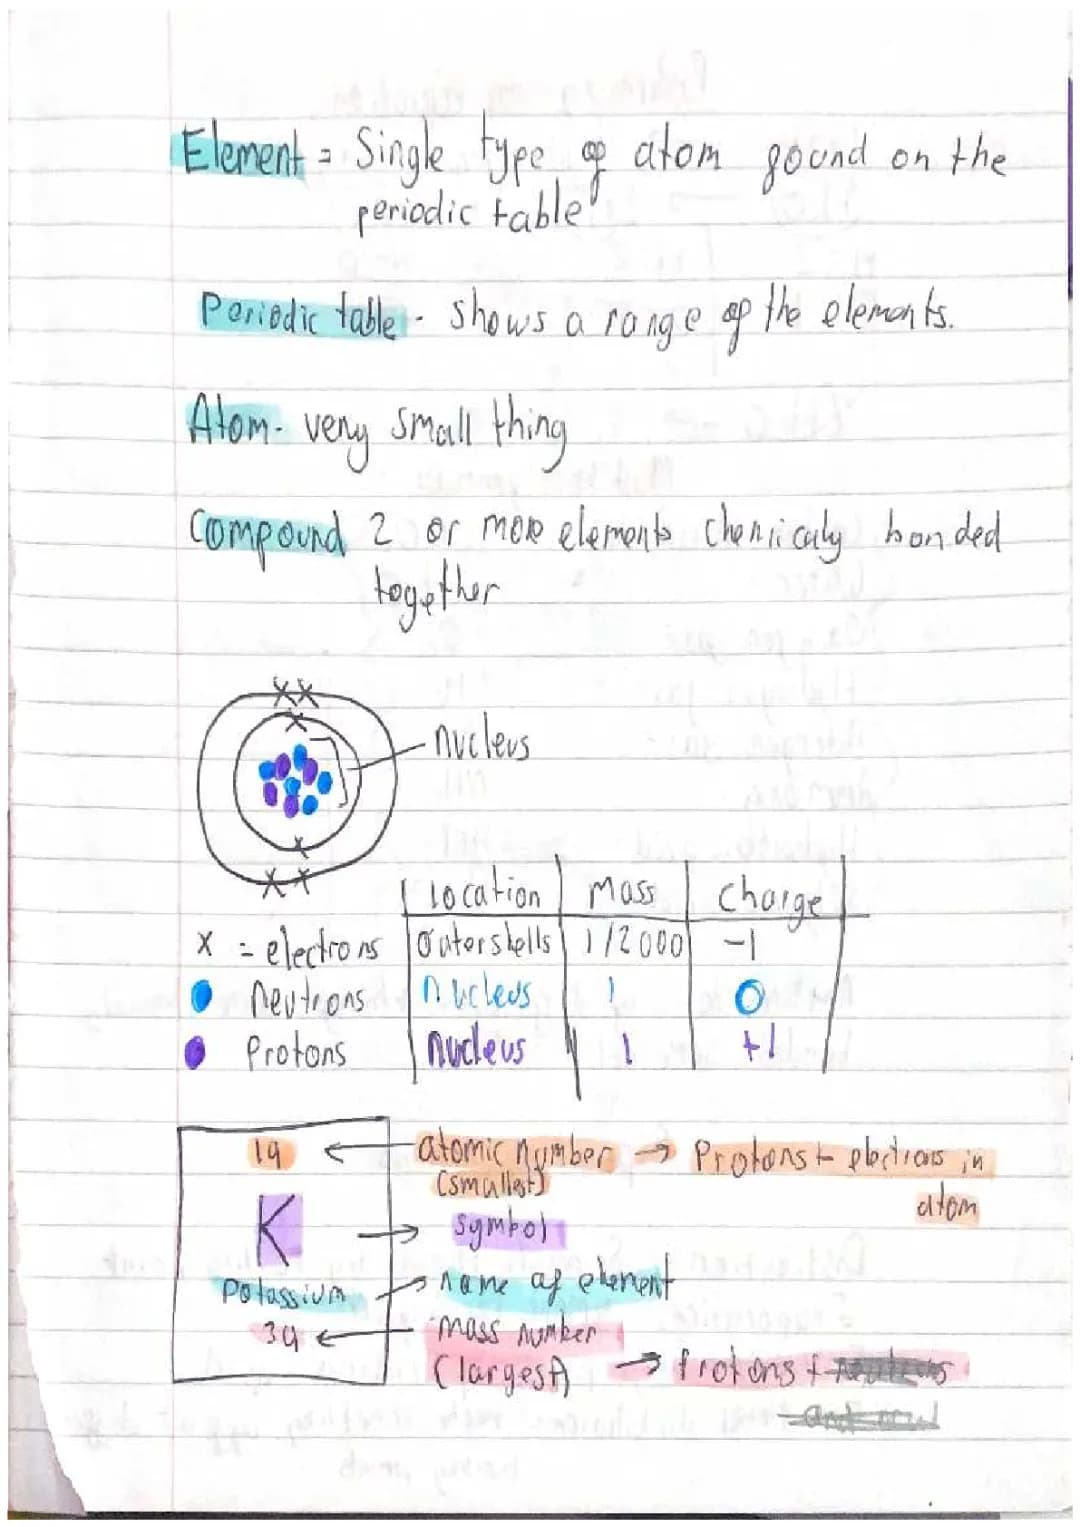 Element = Single type of atom found on the
periodic table
Periodic table - shows a range of the elements.
Atom - very small thing
Compound 2 or more elements chemicaly bonded
together
nucleus
location mass charge
x = electrons outershells 1/2000 -1
neutrons nucleus 1 0
Protons nucleus 1 +1
19 ← atomic number → Protons + electrons in
(smallest) atom
K → symbol
Potassium → name of element
39 ← mass number
(largest) → Protons +